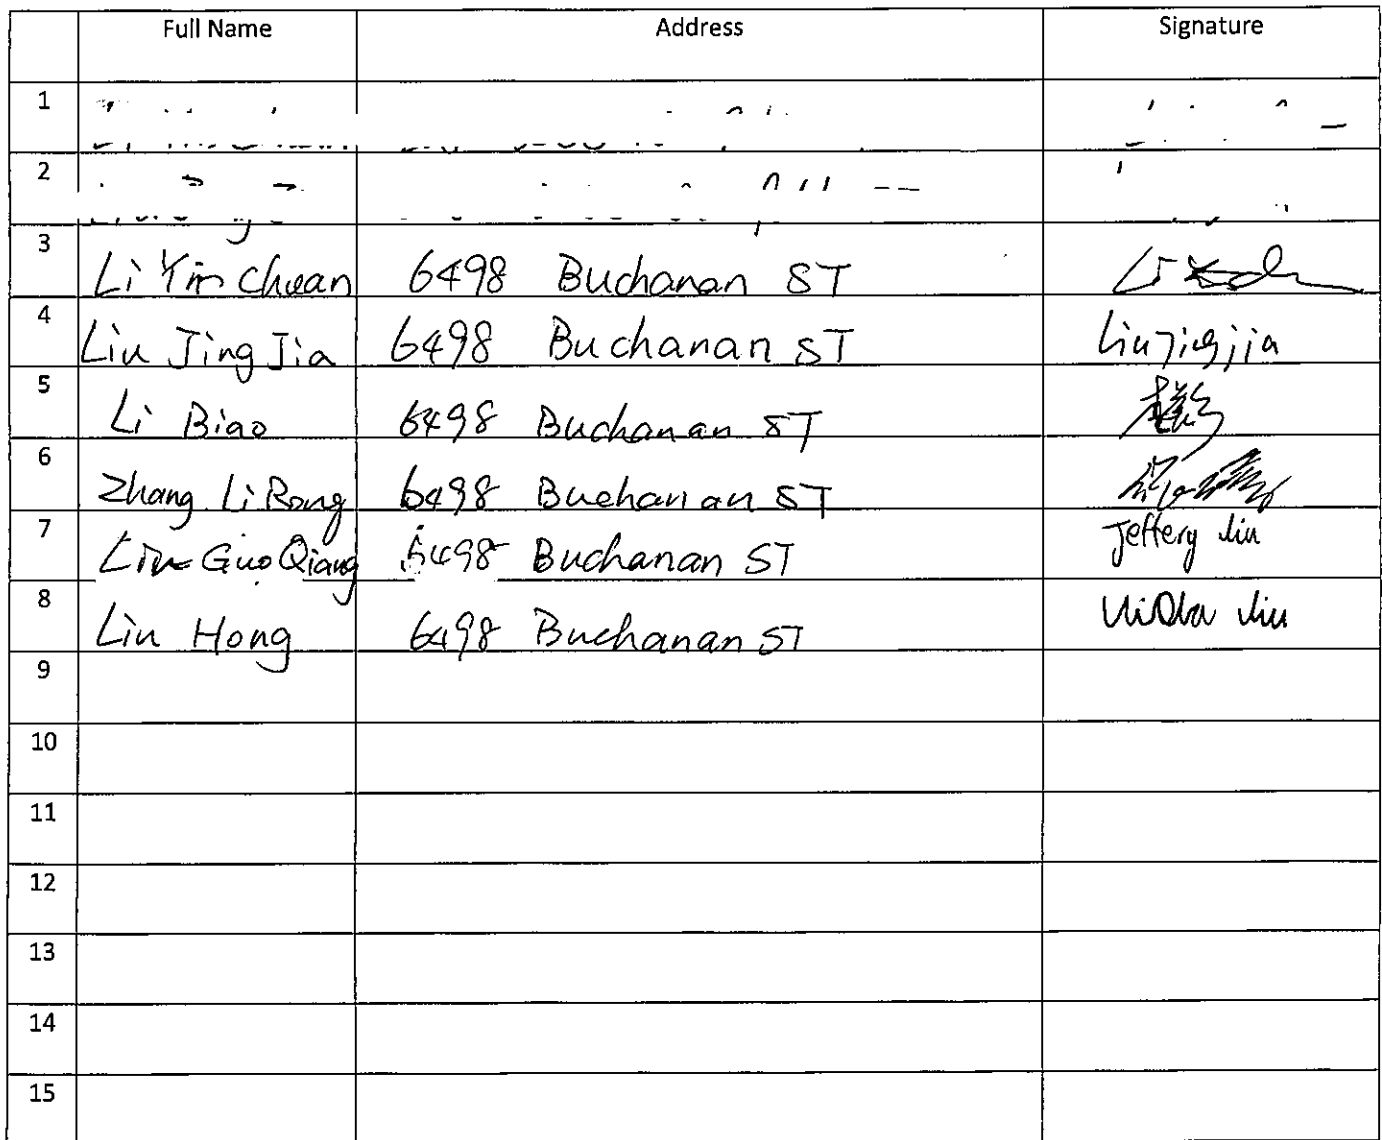 Full Name Address Signature
1
2
3 Li Yin Chuan 6498 Buchanan ST
4 Liu Jing Jia 6498 Buchanan ST Liu Jing jia
5 Li Biao 6498 Buchanan ST
6 Zhang Li Rong 6498 Buchanan ST
7 Liu Guo Qiang 6498 Buchanan ST Jeffery Liu
8 Liu Hong 6498 Buchanan ST Liu
9
10
11
12
13
14
15